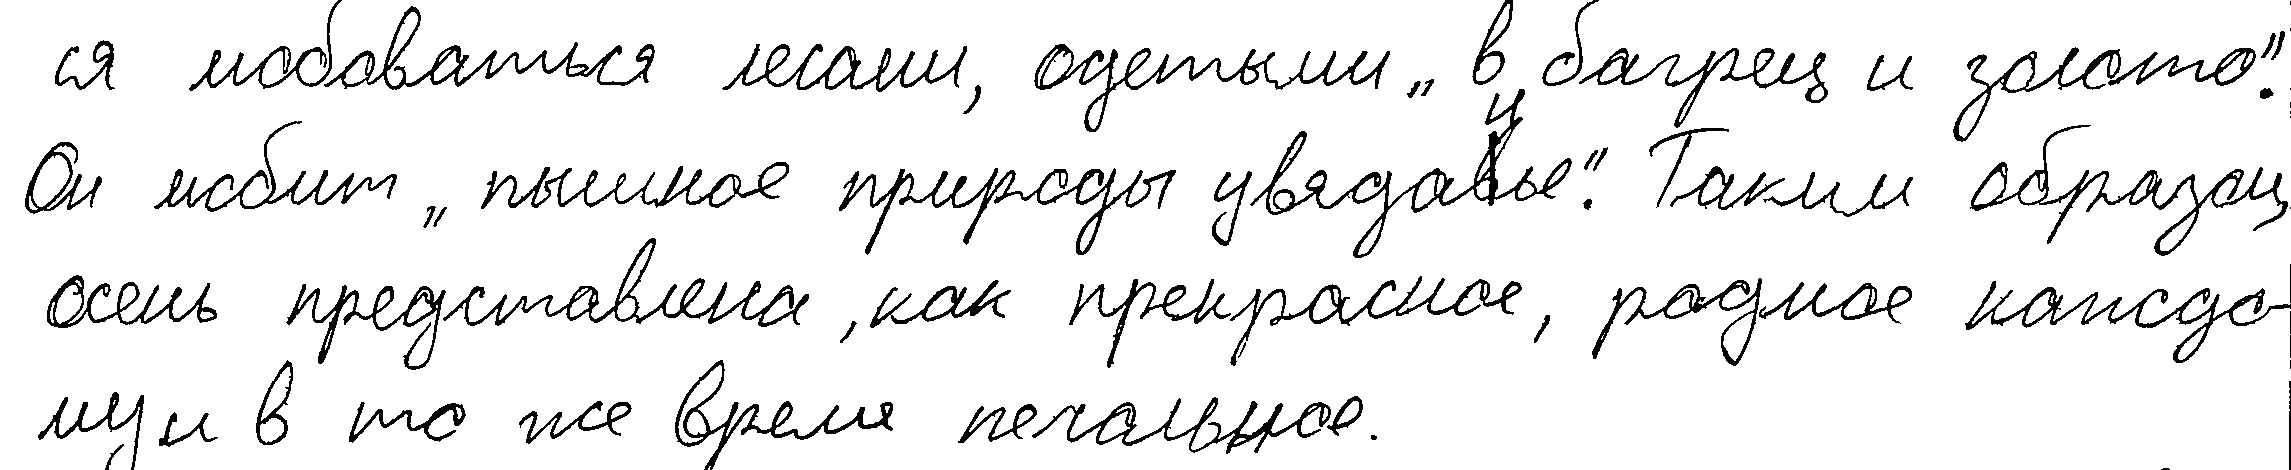 ся любоваться лесами, одетыми „в багрец и золото".
Он любит „пышное природы увяданье". Таким образом,
осень представлена, как прекрасное, родное каждо-
му и в то же время печальное.